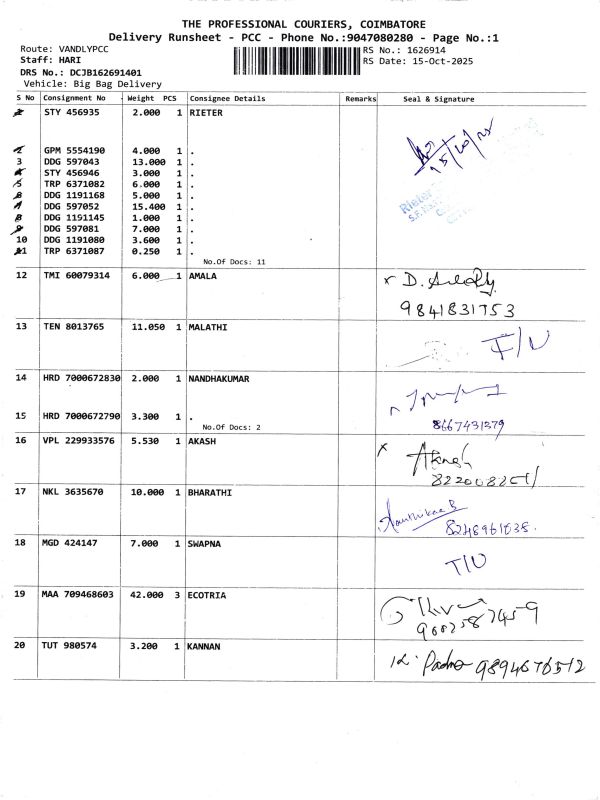 THE PROFESSIONAL COURIERS, COIMBATORE
Delivery Runsheet - PCC - Phone No.:9047080280 - Page No.:1
Route: VANDLYPCC
Staff: HARI
DRS No.: DCJB162691401
Vehicle: Big Bag Delivery
RS No.: 1626914
RS Date: 15-Oct-2025
S No Consignment No Weight PCS Consignee Details Remarks Seal & Signature
STY 456935 2.000 1 RIETER
15/10/25
GPM 5554190 4.000 1 .
3 DDG 597043 13.000 1 .
STY 456946 3.000 1 .
5 TRP 6371082 6.000 1 .
DDG 1191168 5.000 1 .
DDG 597052 15.400 1 .
8 DDG 1191145 1.000 1 .
9 DDG 597081 7.000 1 .
10 DDG 1191080 3.600 1 .
11 TRP 6371087 0.250 1 .
Rieter
No.Of Docs: 11
12 TMI 60079314 6.000 1 AMALA
9841831753
13 TEN 8013765 11.050 1 MALATHI
14 HRD 7000672830 2.000 1 NANDHAKUMAR
15 HRD 7000672790 3.300 1 .
8667431379
No.Of Docs: 2
16 VPL 229933576 5.530 1 AKASH
Akash
17 NKL 3635670 10.000 1 BHARATHI
8248961038.
18 MGD 424147 7.000 1 SWAPNA
T/U
19 MAA 709468603 42.000 3 ECOTRIA
20 TUT 980574 3.200 1 KANNAN
9894676512